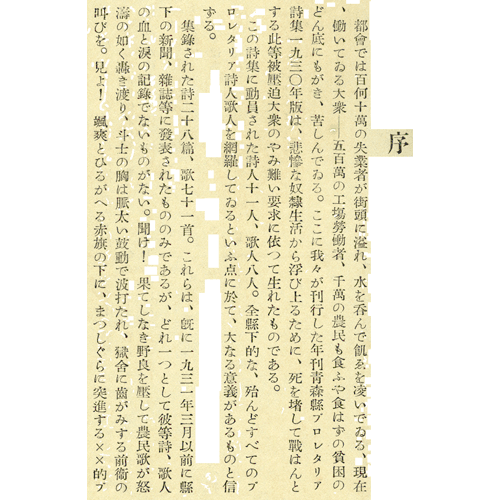 序
都會では百何十萬の失業者が街頭に溢れ、水を呑んで飢ゑを凌いでゐる、現在
、働いてゐる大衆――五百萬の工場勞働者、千萬の農民も食ふや食はずの貧困の
どん底にもがき、苦しんでゐる。ここに我々が刊行した年刊靑森縣プロレタリア
詩集一九三〇年版は、悲慘な奴隷生活から浮び上るために、死を堵して戰はんと
する此等被壓迫大衆のやみ難い要求に依つて生れたものである。
この詩集に動員された詩人十一人、歌人八人。全縣下的な、殆んどすべてのプ
ロレタリア詩人歌人を網羅してゐるといふ点に於て、大なる意義があるものと信
ずる。
集錄された詩二十八篇、歌七十一首。これらは、旣に一九三一年三月以前に縣
下の新聞、雜誌等に發表されたもののみであるが、どれ一つとして彼等詩、歌人
の血と淚の記錄でないものがない。聞け！　果てしなき野良を壓して農民歌が怒
濤の如く轟き渡り、斗士の胸は脈太い鼓動で波打たれ、獄舍に齒がみする前衞の
叫びを。見よ！　颯爽とひるがへる赤旗の下に、まつしぐらに突進する××的プ